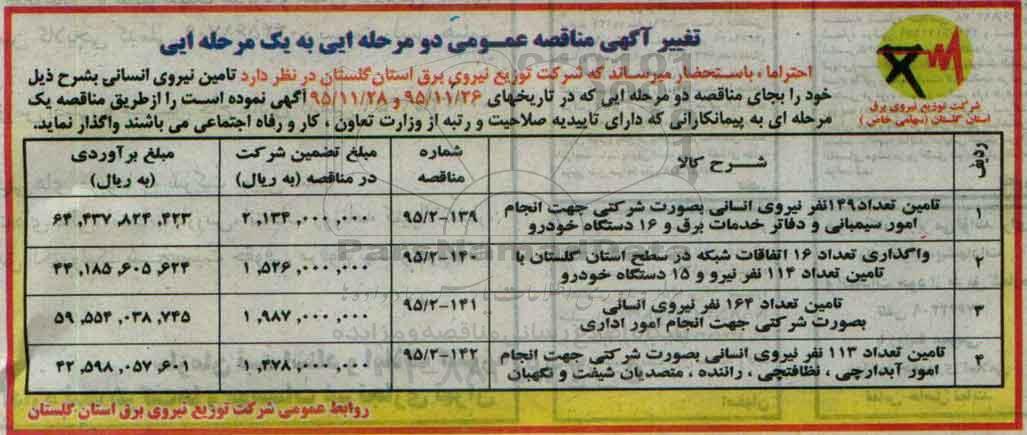 تغییر آگهی مناقصه عمـومی دو مرحله ایی به یک مرحله ایی
شرکت توزیع نیروی برق
استان گلستان (سهامی خاص)
احتراما ، باستحضار میرساند که شرکت توزیع نیروی برق استان گلستان در نظر دارد تامین نیروی انسانی بشرح ذیل
خود را بجای مناقصه دو مرحله ایی که در تاریخهای ۹۵/۱۱/۲۶ و ۹۵/۱۱/۲۸ آگهی نموده است را از طریق مناقصه یک
مرحله ای به پیمانکارانی که دارای تاییدیه صلاحیت و رتبه از وزارت تعاون ، کار و رفاه اجتماعی می باشند واگذار نماید.
ردیف شــرح کالا شماره مناقصه مبلغ تضمین شرکت در مناقصه (به ریال) مبلغ برآوردی (به ریال)
۱ تامین تعداد۱۴۹نفر نیروی انسانی بصورت شرکتی جهت انجام
امور سیمبانی و دفاتر خدمات برق و ۱۶ دستگاه خودرو
۹۵/۲-۱۳۹ ۲,۱۳۴,۰۰۰,۰۰۰ ۶۴,۴۳۷,۸۲۴,۴۲۳
۲ واگذاری تعداد ۱۶ اتفاقات شبکه در سطح استان گلستان با
تامین تعداد ۱۱۴ نفر نیرو و ۱۵ دستگاه خودرو
۹۵/۲-۱۴۰ ۱,۵۲۶,۰۰۰,۰۰۰ ۴۴,۱۸۵,۶۰۵,۶۲۴
۳ تامین تعداد ۱۶۴ نفر نیروی انسانی
بصورت شرکتی جهت انجام امور اداری
۹۵/۲-۱۴۱ ۱,۹۸۷,۰۰۰,۰۰۰ ۵۹,۵۵۴,۰۳۸,۷۴۵
۴ تامین تعداد ۱۱۳ نفر نیروی انسانی بصورت شرکتی جهت انجام
امور آبدارچی ، نظافتچی ، راننده ، متصدیان شیفت و نگهبان
۹۵/۲-۱۴۲ ۱,۴۷۸,۰۰۰,۰۰۰ ۴۲,۵۹۸,۰۵۷,۶۰۱
روابط عمومی شرکت توزیع نیروی برق استان گلستان
ParsNamadData